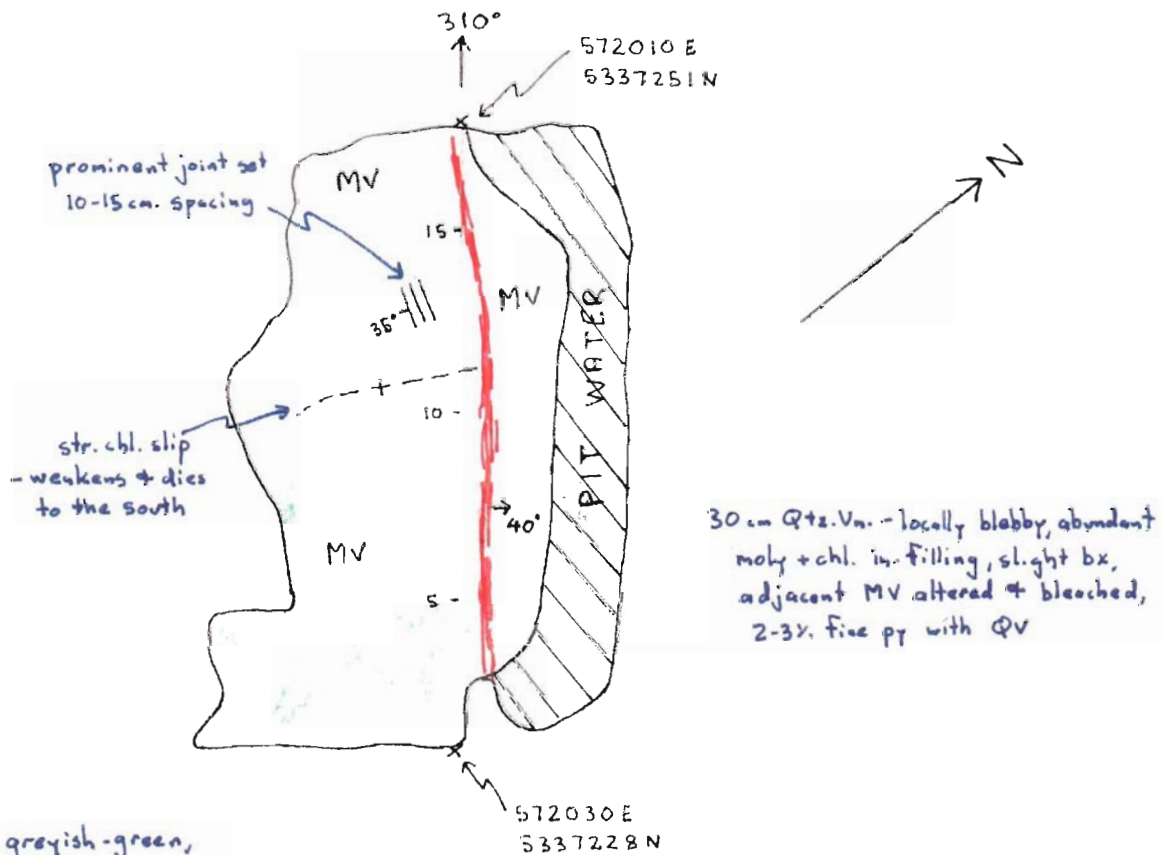 310°
572010 E
5337251 N
prominent joint set
10-15 cm. spacing
MV
N
15 -
MV
35°
PIT WATER
str. chl. slip
- weakens & dies
to the south
10 -
40°
MV
30 cm Qtz. Vn. - locally blebby, abundant
moly + chl. in-filling, slight bx,
adjacent MV altered & bleached,
2-3% fine py with QV
5 -
572030 E
5337228 N
greyish-green,